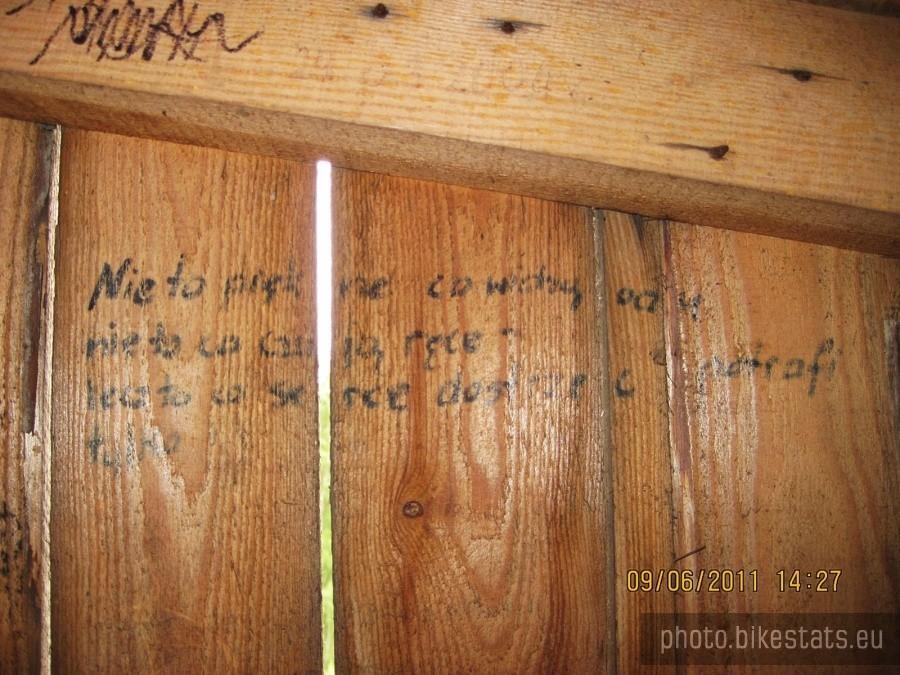 Nie to piękne co widzą oczy
nie to co czują ręce
lecz to co serce dostrzec potrafi
tylko
09/06/2011 14:27
photo.bikestats.eu